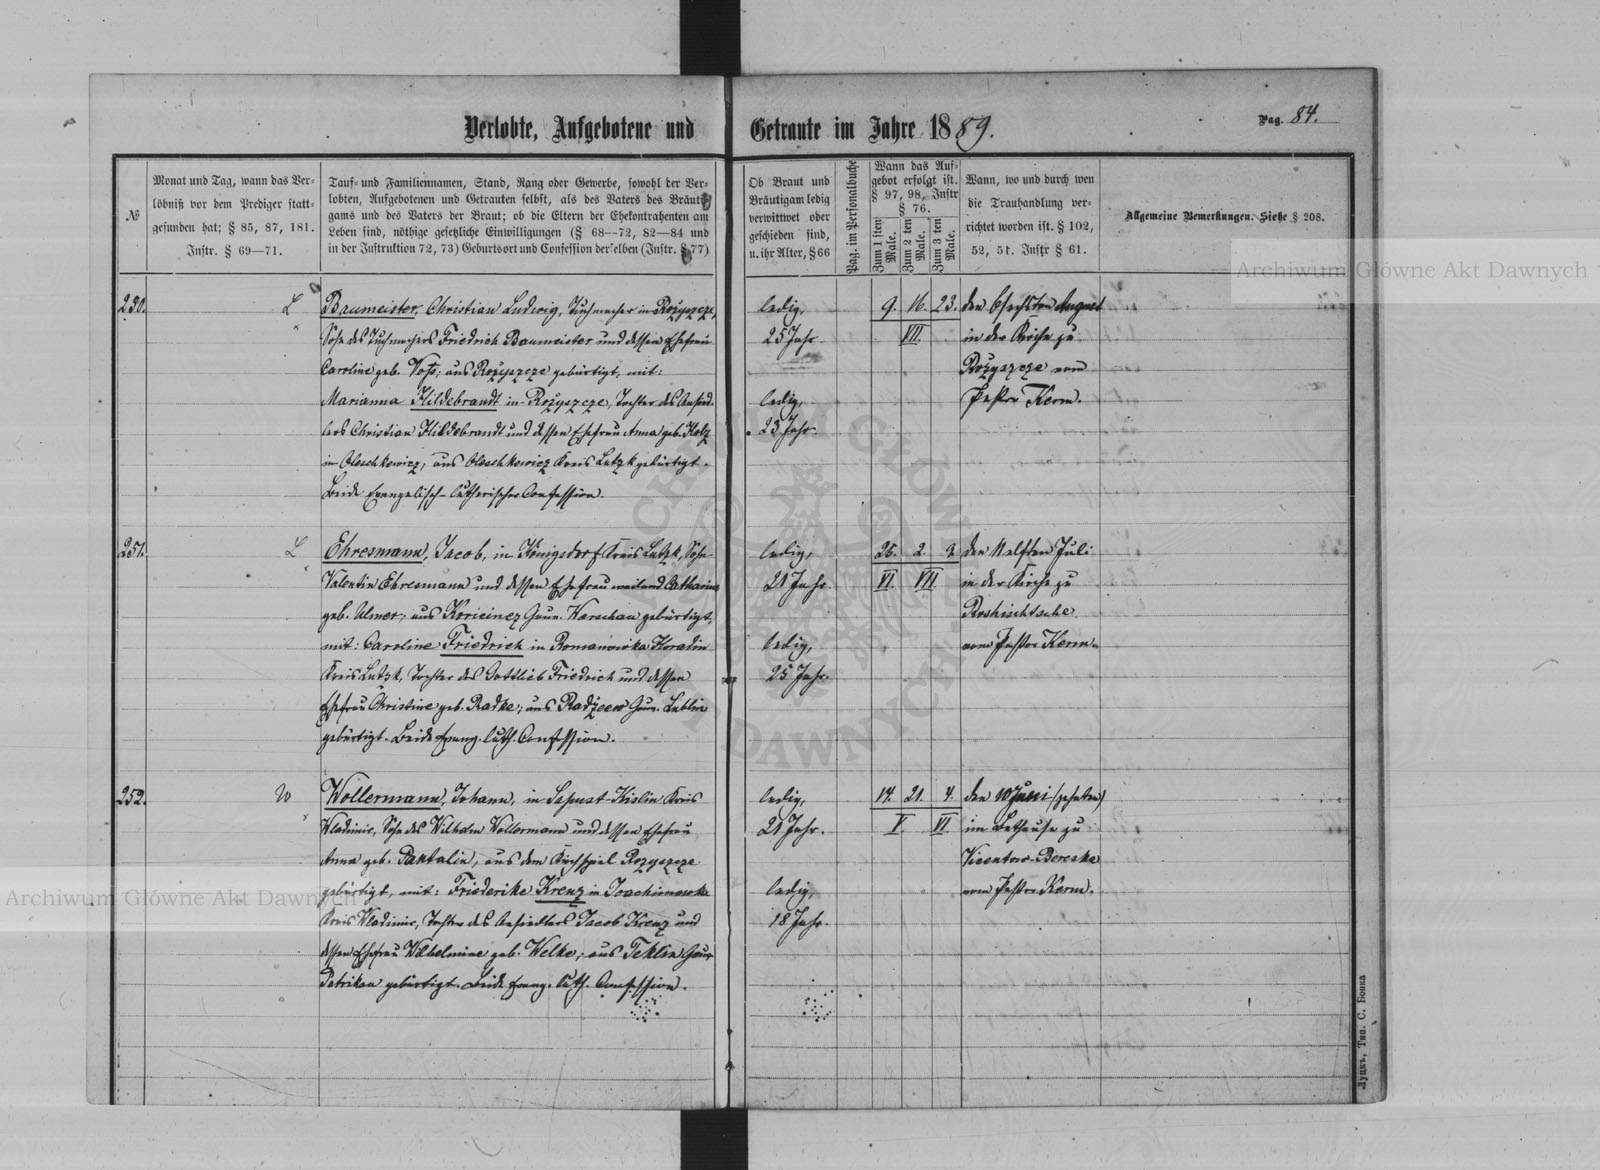 Verlobte, Aufgebotene und Getraute im Jahre 1889.
Pag. 84.
№
Monat und Tag, wann das Ver-
löbniß vor dem Prediger statt-
gefunden hat; § 85, 87, 181.
Instr. § 69—71.
Tauf- und Familiennamen, Stand, Rang oder Gewerbe, sowohl der Ver-
lobten, Aufgebotenen und Getrauten selbst, als des Vaters des Bräuti-
gams und des Vaters der Braut; ob die Eltern der Ehekontrahenten am
Leben sind, nöthige gesetzliche Einwilligungen (§ 68—72, 82—84 und
in der Instruktion 72, 73) Geburtsort und Confession derselben (Instr. § 77)
Ob Braut und
Bräutigam ledig
verwittwet oder
geschieden sind,
u. ihr Alter, § 66
Pag. im Personalbuche
Wann das Auf-
gebot erfolgt ist.
§ 97, 98, Instr
§ 76.
Zum 1 sten Male.
Zum 2 ten Male.
Zum 3 ten Male.
Wann, wo und durch wen
die Trauhandlung ver-
richtet worden ist. § 102,
52, 51. Instr § 61.
Allgemeine Bemerkungen. Siehe § 208.
250.
L
Baumeister, Christian Ludwig, Tuchmacher in Rożyszcze,
Sohn des Tuchmachers Friedrich Baumeister und dessen Ehefrau
Caroline geb. Voß; aus Rożyszcze gebürtigt, mit:
Marianna Hildebrandt in Rożyszcze, Tochter des Ansied-
lers Christian Hildebrandt und dessen Ehefrau Anna geb. Kolz
in Oleschkewicz, aus Oleschkewicz Kreis Lutzk gebürtigt.
Beide Evangelisch-Lutherischer Confession.
ledig,
25 Jahr.
ledig,
23 Jahr.
9. 16. 23.
VII.
den 6 sechsten August
in der Kirche zu
Rożyszcze vom
Pastor Kerm.
251.
L
Ehresmann, Jacob, in Königsdorf Kreis Lutzk, Sohn
Valentin Ehresmann und dessen Ehefrau weiland Catharina
geb. Ulmer, aus Gouv. Warschau gebürtigt,
mit: Caroline Friedrich in Romanowka
Kreis Lutzk, Tochter des Gottlieb Friedrich und dessen
Ehefrau Christine geb. Radke; aus Gouv. Lublin
gebürtigt. Beide Evang. Luth. Confession.
ledig,
21 Jahr.
ledig,
25 Jahr.
25. 2. 9.
VI. VII.
den elften Juli
in der Kirche zu
Roshischtsche
vom Pastor Kerm.
252.
W
Wollermann, Johann, in Sapust-Kislin Kreis
Wladimir, Sohn des Wilhelm Wollermann und dessen Ehefrau
Anna geb. Pantalin, aus dem Kirchspiel Rozyszcze
gebürtigt, mit: Friederike Krenz in Joachimowka
Kreis Wladimir, Tochter des Ansiedlers Jacob Krenz und
dessen Ehefrau Wilhelmine geb. Welke, aus Teklin Gouv.
Petrikau gebürtigt. Beide Evang. Luth. Confession.
ledig,
21 Jahr.
ledig,
18 Jahr.
14. 21. 4.
V. VI.
den 10 Juni (zehnten)
im Bethause zu
Vicentow-Bereske
vom Pastor Kerm.
Луцкъ, Тип. С. Бонка
Archiwum Główne Akt Dawnych
Archiwum Główne Akt Dawnych